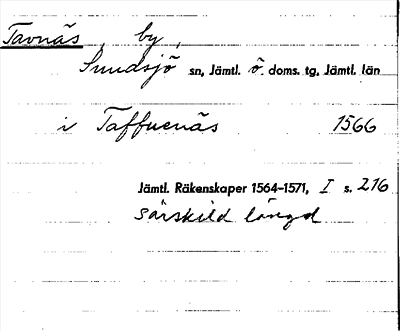 Tavnäs, by,
Sundsjö sn, Jämtl. ö. doms. tg, Jämtl. län
i Taffuenäs 1566
Jämtl. Räkenskaper 1564-1571, I s. 216
Särskild längd